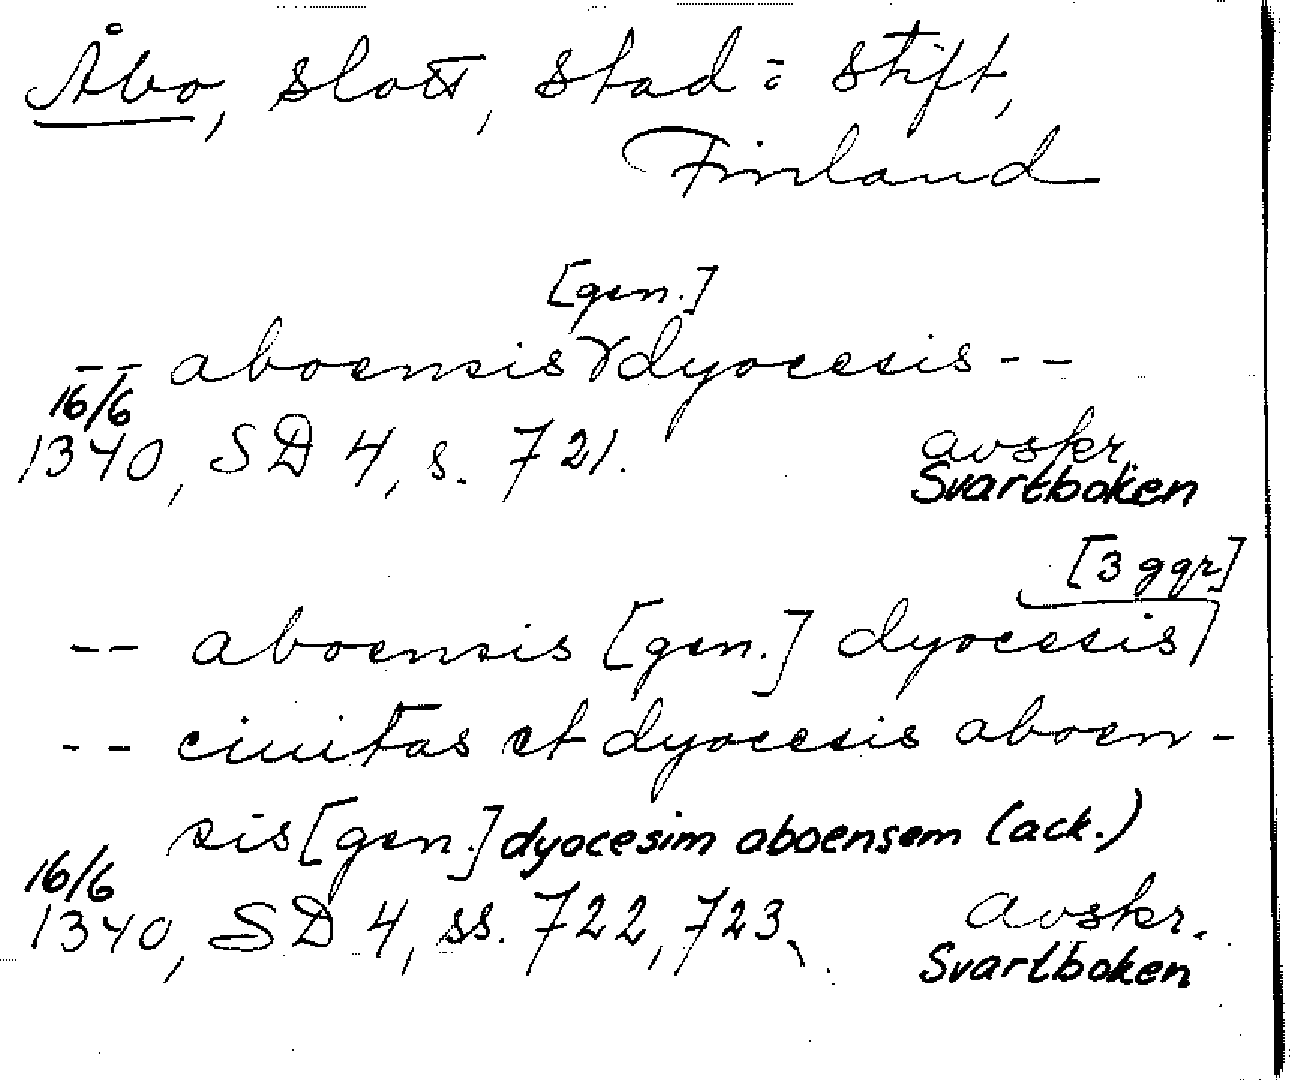 Åbo, slott, stad : stift,
Finland
[gen.]
-- aboensis dyocesis --
16/6
1340, SD 4, s. 721. avskr.
Svartboken
[3 ggr]
-- aboensis [gen.] dyocesis
-- ciuitas et dyocesis aboen-
sis [gen.] dyocesim aboensem (ack.)
16/6
1340, SD 4, ss. 722, 723. avskr.
Svartboken